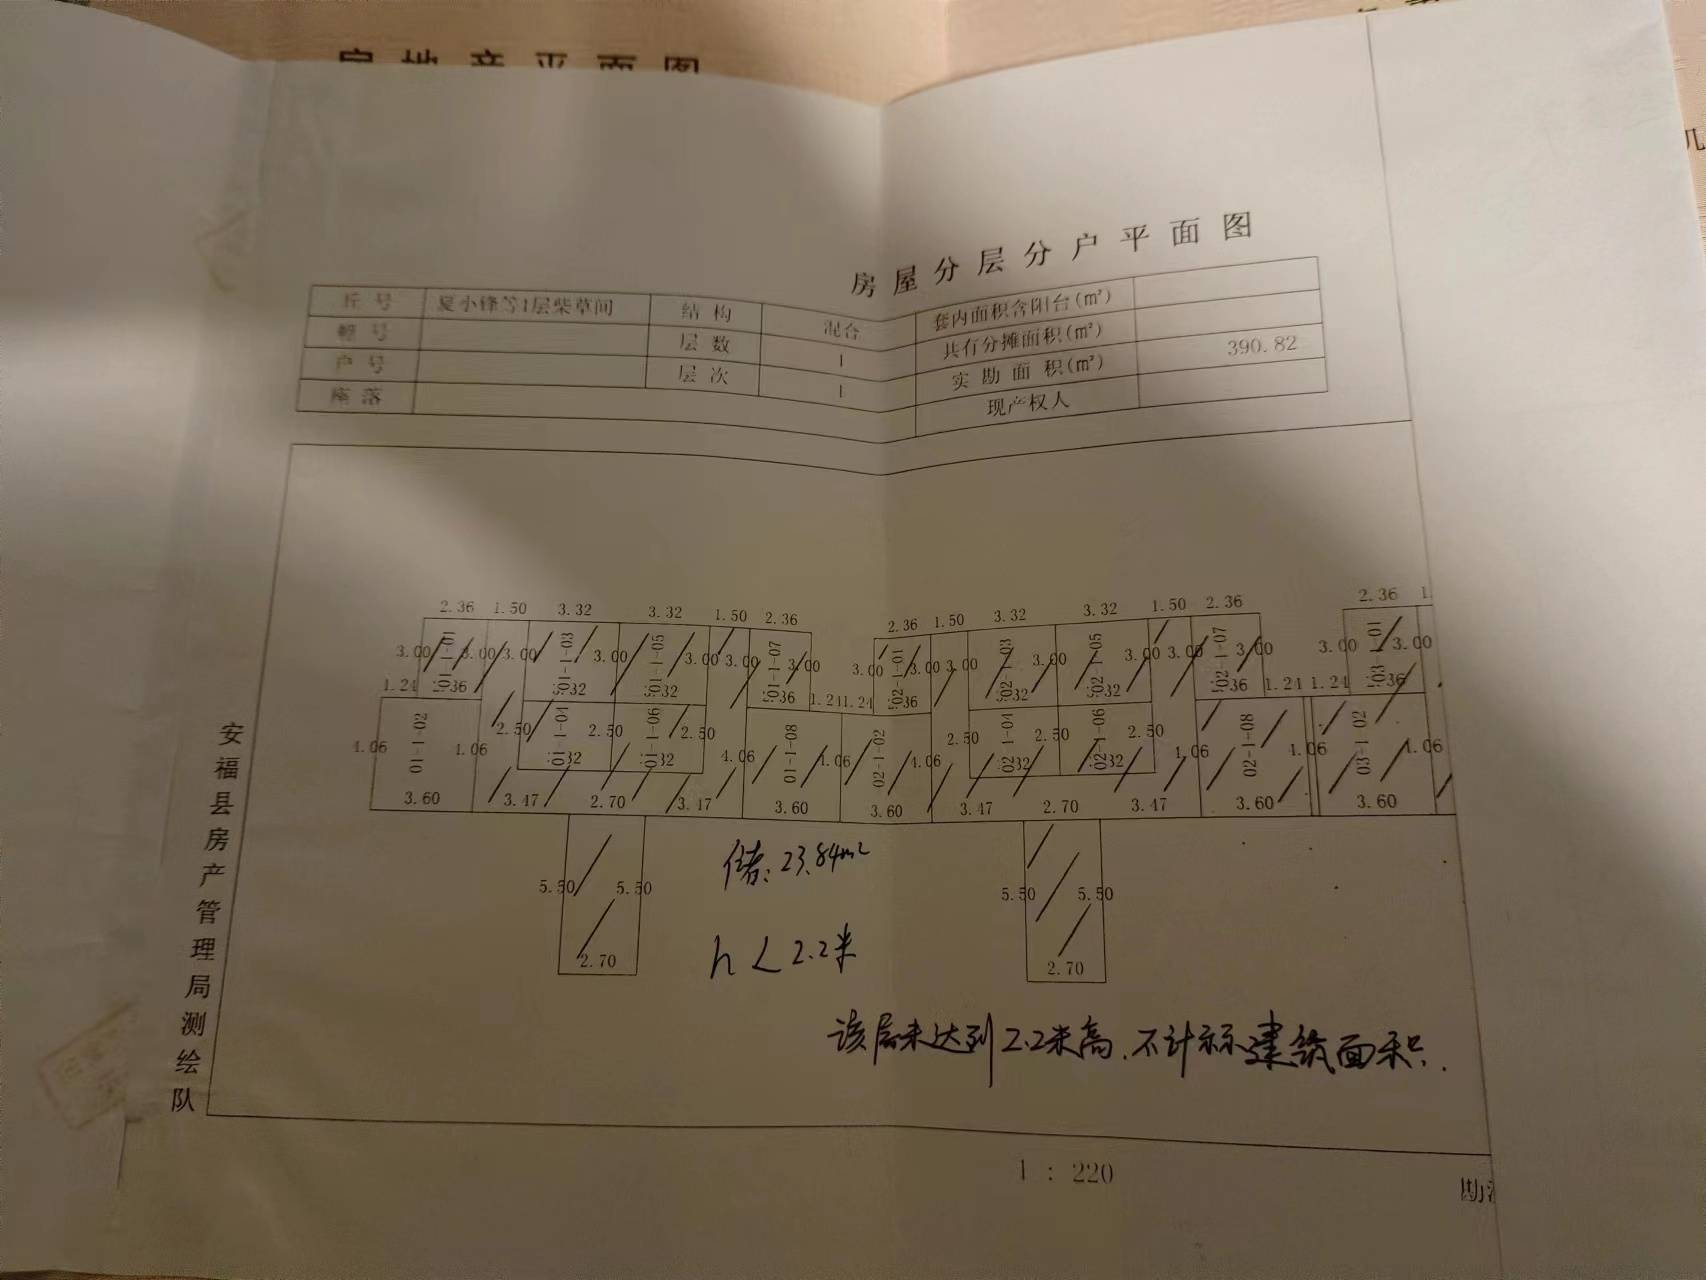 房地产平面图
房屋分层分户平面图
丘号 夏小锋等1层柴草间 结构 混合 套内面积含阳台(㎡)
幢号 层数 1 共有分摊面积(㎡)
户号 层次 1 实勘面积(㎡) 390.82
座落 现产权人
2.36 1.50 3.32 3.32 1.50 2.36 2.36 1.50 3.32 3.32 1.50 2.36 2.36 1.
3.00 01-1-01 3.00 3.00 01-1-03 3.00 01-1-05 3.00 3.00 01-1-07 3.00 3.00 02-1-01 3.00 3.00 02-1-03 3.00 02-1-05 3.00 3.00 02-1-07 3.00 3.00 03-1-01 3.00
1.24 2.36 3.32 3.32 2.36 1.24 1.24 2.36 3.32 3.32 2.36 1.24 1.24 2.36
4.06 01-1-02 4.06 2.50 01-1-04 2.50 01-1-06 2.50 4.06 01-1-08 4.06 02-1-02 4.06 2.50 02-1-04 2.50 02-1-06 2.50 4.06 02-1-08 4.06 03-1-02 4.06
3.32 3.32 3.32 3.32
3.60 3.47 2.70 3.47 3.60 3.60 3.47 2.70 3.47 3.60 3.60
储:23.84m²
5.50 5.50 5.50 5.50
h<2.2米
2.70 2.70
该层未达到2.2米高.不计算建筑面积.
安福县房产管理局测绘队
1:220
勘